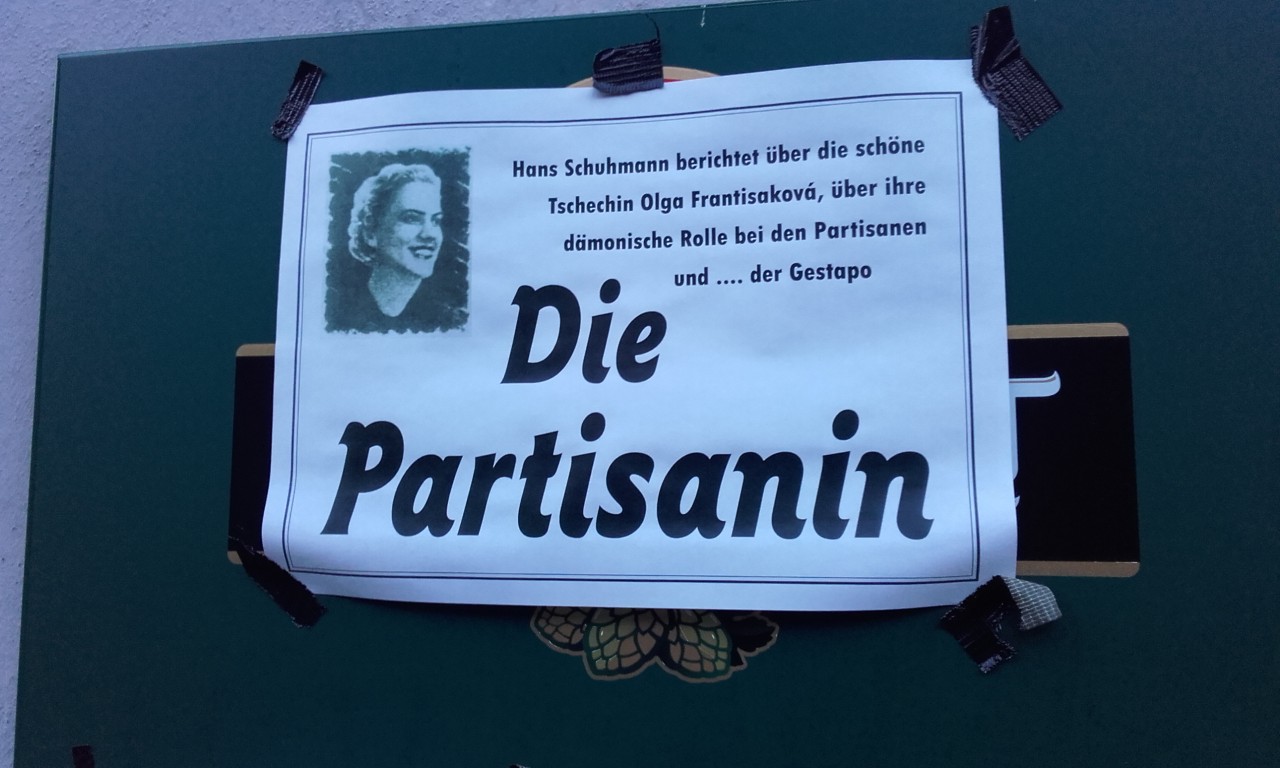 Hans Schuhmann berichtet über die schöne
Tschechin Olga Frantisaková, über ihre
dämonische Rolle bei den Partisanen
und .... der Gestapo
Die
Partisanin